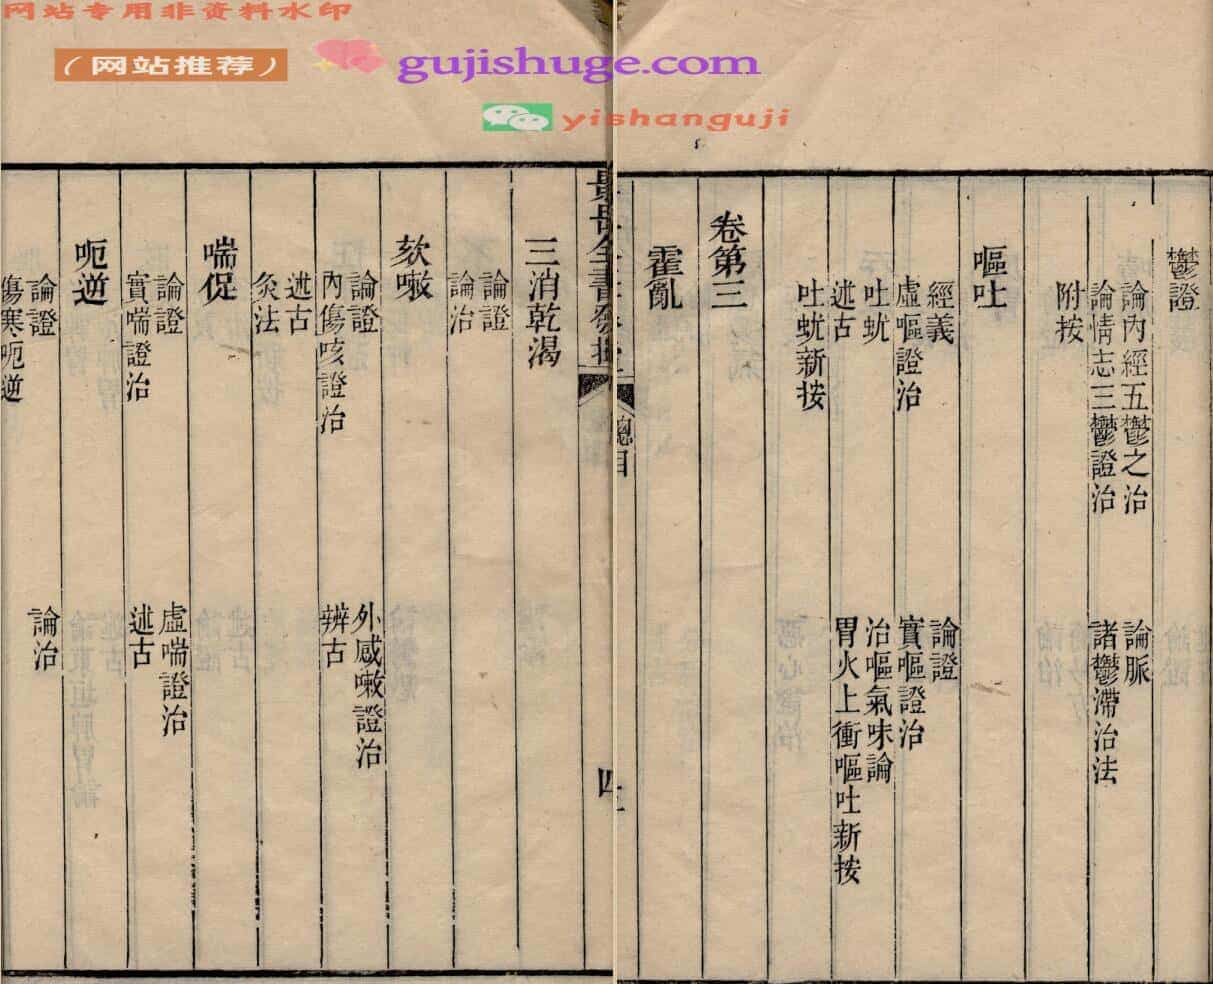 网站专用非资料水印
(网站推荐)
gujishuge.com
yishanguji
鬱證
論內經五鬱之治
論脈
論情志三鬱證治
諸鬱滯治法
附按
嘔吐
經義
論證
虛嘔證治
實嘔證治
吐蚘
治嘔氣味論
述古
胃火上衝嘔吐新按
吐蚘新按
卷第三
霍亂
景岳全書發揮
總目
四
三消乾渴
論證
論治
欬嗽
論證
外感嗽證治
內傷咳證治
辨古
述古
灸法
喘促
論證
虛喘證治
實喘證治
述古
呃逆
論證
論治
傷寒呃逆